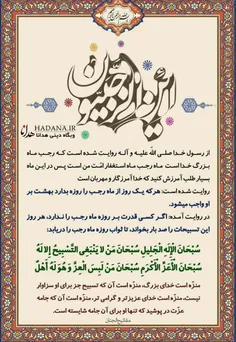 أین الرجبیون
HADANA.IR
وبگاه دینی هدانا
از رسول خدا صلی الله علیه و آله روایت شده است که رجب ماه
بزرگ خدا است ماه رجب ماه استغفار امّت من است پس در این ماه
بسیار طلب آمرزش کنید که خدا آمرزگار و مهربان است
روایت شده است: هرکه یک روز از ماه رجب را روزه بدارد بهشت بر
او واجب میشود.
در روایت آمده: اگر کسی قدرت بر روزه ماه رجب را ندارد، هر روز
این تسبیحات را صد بار بخواند، تا ثواب روزه ماه رجب را دریابد:
سُبْحَانَ الْإِلَهِ الْجَلِيلِ سُبْحَانَ مَنْ لا يَنْبَغِي التَّسْبِيحُ إِلا لَهُ
سُبْحَانَ الْأَعَزِّ الْأَكْرَمِ سُبْحَانَ مَنْ لَبِسَ الْعِزَّ وَ هُوَ لَهُ أَهْلٌ
منزّه است خدای بزرگ، منزّه است آن که تسبیح جز برای او سزاوار
نیست، منزّه است خدای عزیزتر و گرامی تر، منزّه است آن که جامه
عزّت در پوشید که تنها او برای آن جامه شایسته است.
مفاتیح الجنان